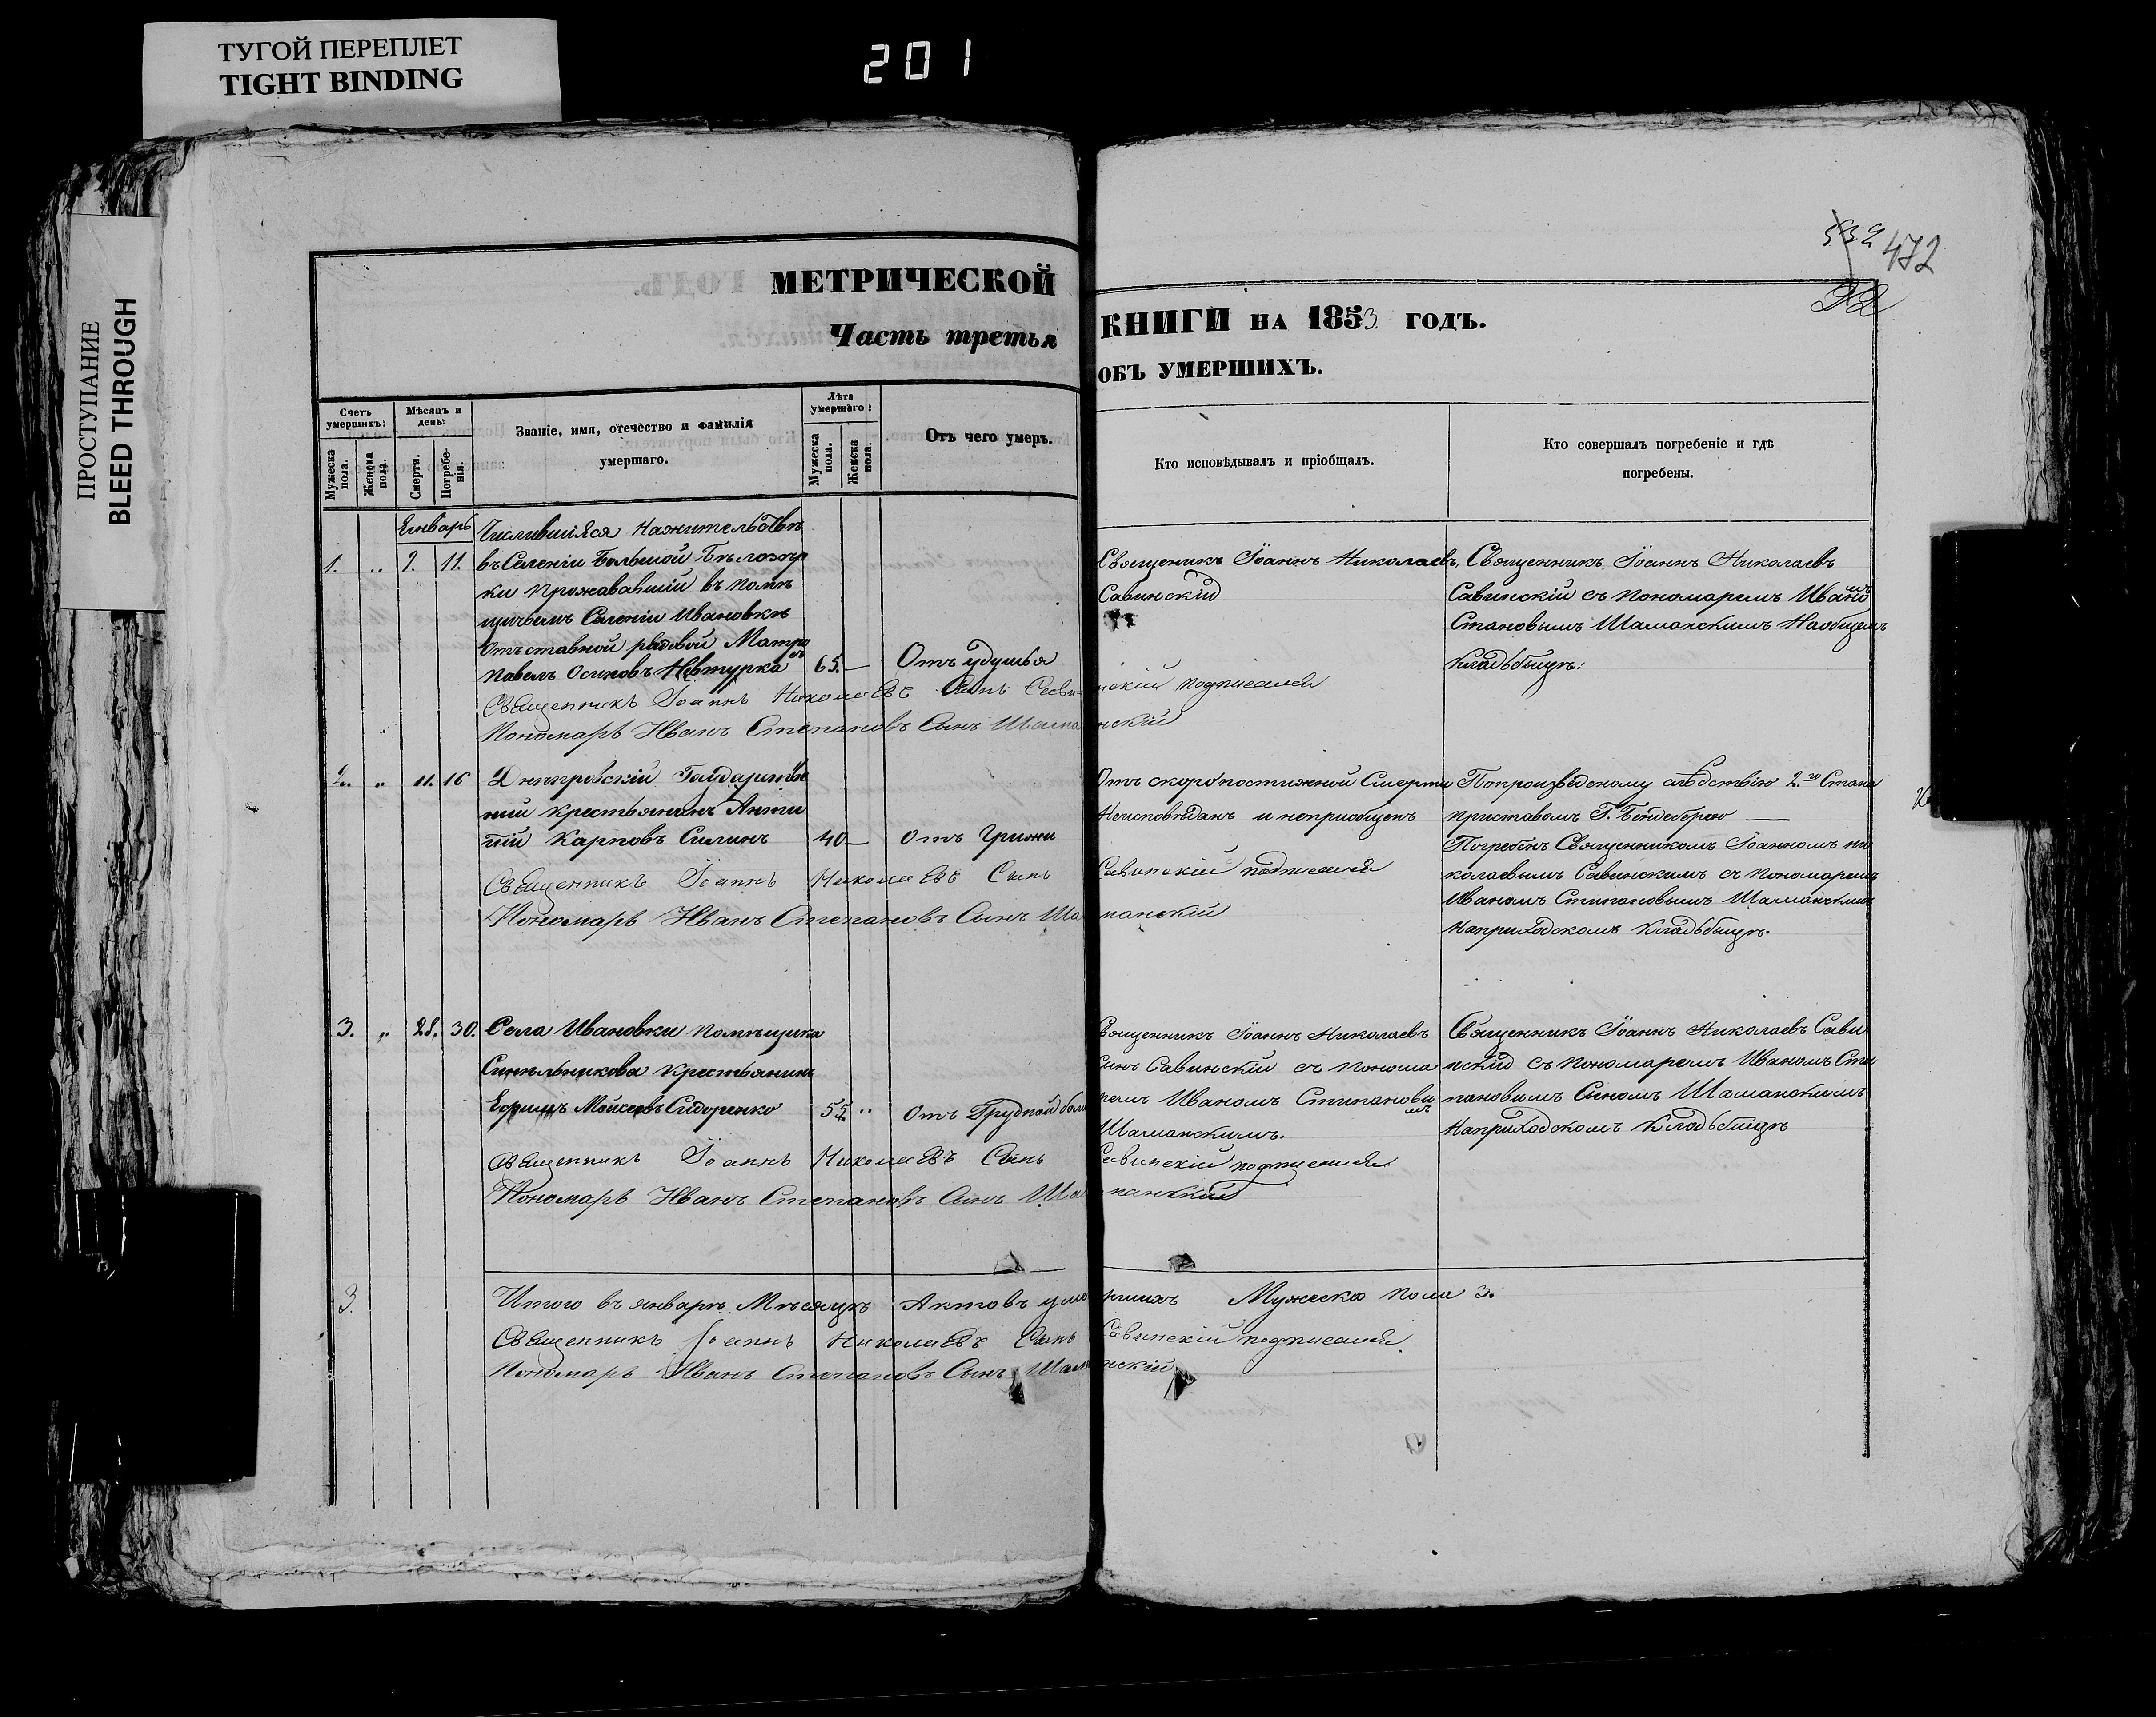 ТУГОЙ ПЕРЕПЛЕТ
TIGHT BINDING
201
ПРОСТУПАНИЕ
BLEED THROUGH
532 472
МЕТРИЧЕСКОЙ КНИГИ НА 1853 ГОДЪ.
Часть третья ОБЪ УМЕРШИХЪ.
Счетъ умершихъ:
Мужеска пола.
Женска пола.
Мѣсяцъ и день:
Смерти.
Погребенія.
Званіе, имя, отечество и фамилія
умершаго.
Лѣта умершаго:
Мужеска пола.
Женска пола.
Отъ чего умеръ.
Кто исповѣдывалъ и пріобщалъ.
Кто совершалъ погребеніе и гдѣ
погребены.
Январь
1. „ 7. 11.
Числившійся Нажительствѣ
въ Селеніи Большой Бѣлозер
ки Прожававшій въ Помѣ
щичьемъ Селеніи Ивановкѣ
Отъставной рядовой Матро
Павелъ Осиповъ 65.— Отъ удушья
Священикъ Іоаннъ Николаевъ
Савинскій
Священникъ Іоаннъ Николаевъ
Савинскій съ пономаремъ Ивано
мъ
Шаманскимъ Наобщемъ
Кладьбищѣ:
Священникъ Іоаннъ Николаевъ Сынъ Савинскій подписался
Пономарь Иванъ Степановъ Сынъ Шаманскій
2. „ 11. 16
Днѣпровскій
крестьянинъ Анти
пій Карповъ Силинъ 40— Отъ Грижи
Отъ скоропостижной Смерти
Неисповѣданъ и неприобщенъ
Попроизведеному следствію 2.го Стана
приставомъ Г.
Погребенъ Священникомъ Іоанномъ Ни
колаевымъ Савинскимъ съ пономаремъ
Иваномъ Стипановымъ Шаманскимъ
Наприходскомъ Кладьбищѣ.
Священникъ Іоаннъ Николаевъ Сынъ Савинскій подписался
Пономарь Иванъ Степановъ Сынъ Шаманскій
3. „ 28. 30.
Села Ивановки Помѣщика
Синельникова Крестьянинъ
Ефимъ Моисеевъ Сидоренко 55. „ Отъ Грудной боли
Священникъ Іоаннъ Николаевъ
Сынъ Савинскій съ понома
ремъ Иваномъ Стипановы
мъ
Шаманскимъ.
Священникъ Іоаннъ Николаевъ Сави
нскій съ пономаремъ Иваномъ Сти
пановымъ Сыномъ Шаманскимъ
Наприходскомъ Кладьбищѣ
Священникъ Іоаннъ Николаевъ Сынъ Савинскій подписался
Пономарь Иванъ Степановъ Сынъ Шаманскій
3.
Итого въ январѣ Мѣсяцѣ Актовъ умершихъ Мужеска пола 3.
Священникъ Іоаннъ Николаевъ Сынъ Савинскій подписался.
Пономарь Иванъ Степановъ Сынъ Шаманскій